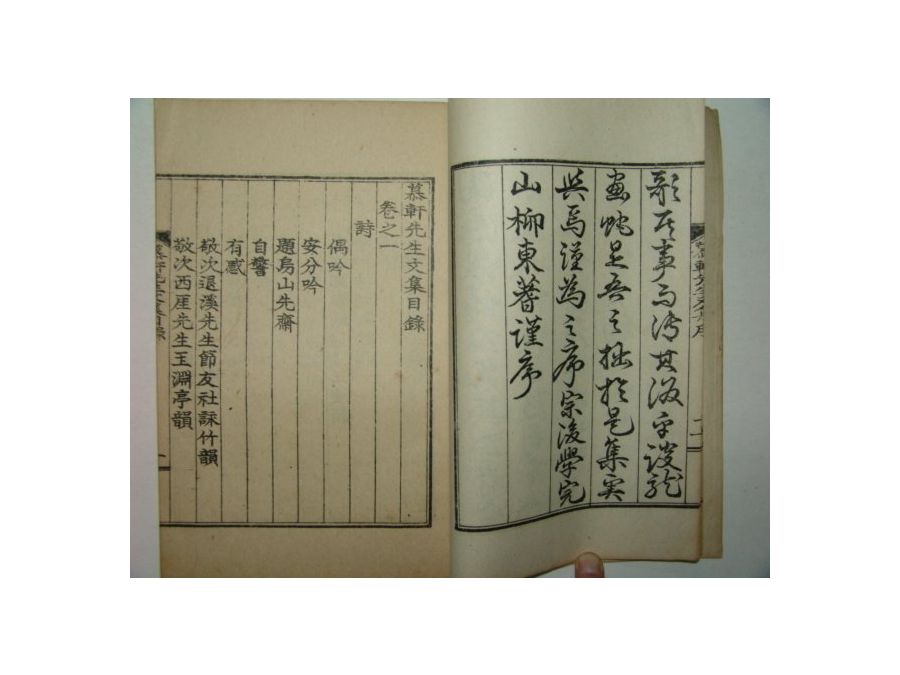 事而
是吾之拙於是集實
與焉謹為之序宗後學完
山柳東蓍謹序
慕軒先生文集目錄
卷之一
詩
偶吟
安分吟
題烏山先齋
自警
有感
敬次退溪先生節友社詠竹韻
敬次西厓先生玉淵亭韻
慕軒先生文集目錄